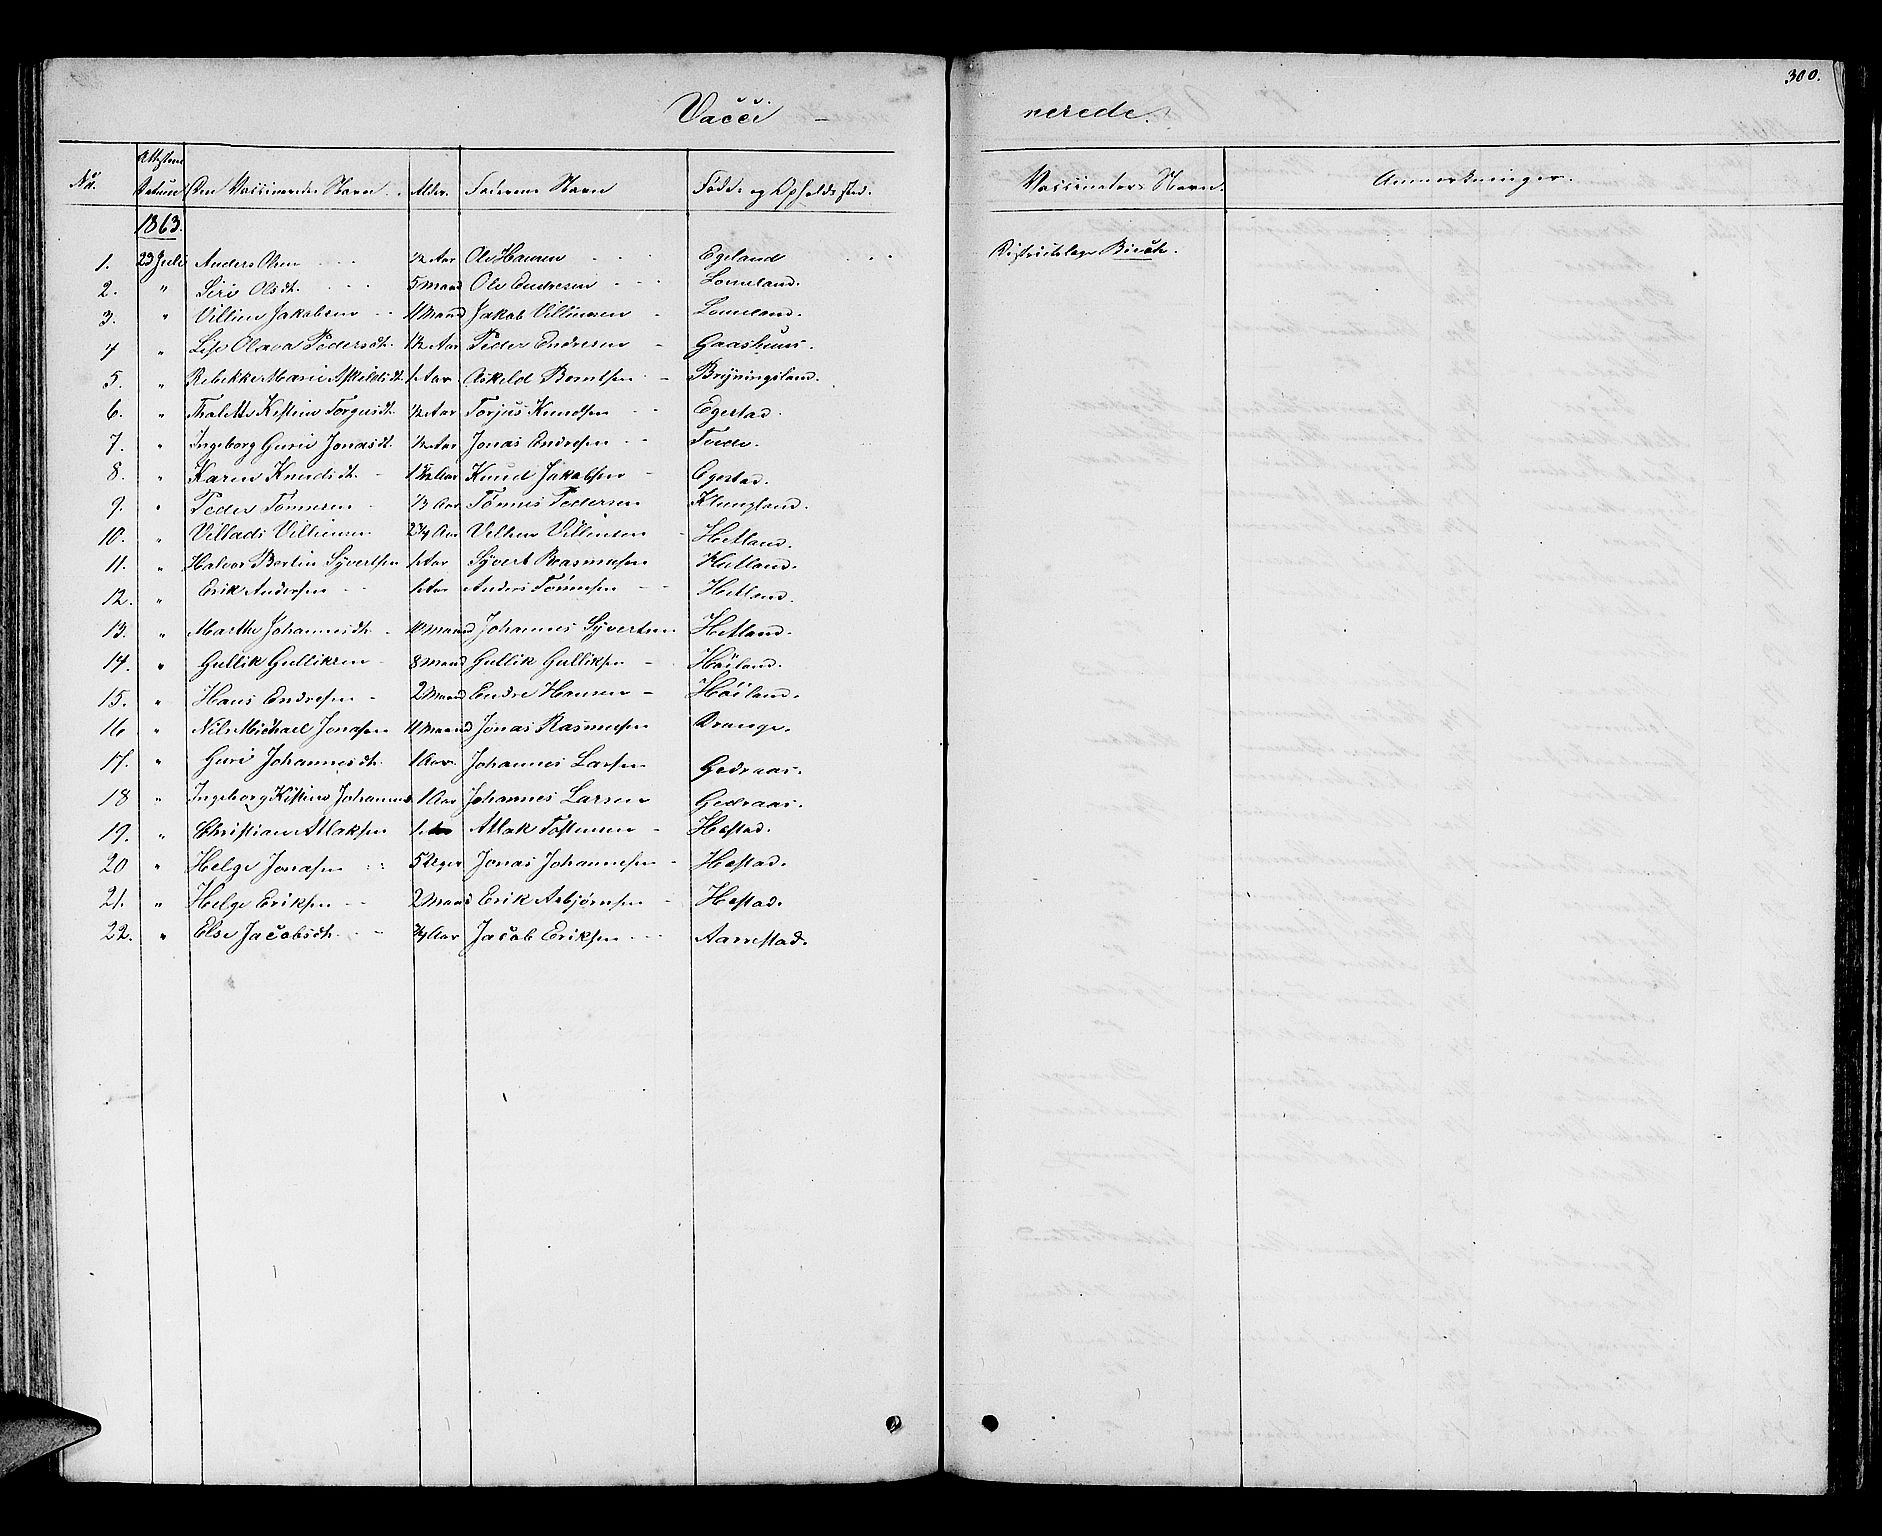 300.
Vacci - nerede.
No. Attestens Datum Den Vaccineredes Navn. Alder. Faderens Navn Føde- og Opholdssted. Vaccinators Navn. Anmærkninger.
1863.
1. 23 Juli Anders Olsen 1/2 Aar Ole Hansen Egeland Districtslæge Bioch.
2. " Siri Olsdt. 5 Maand Ole Endresen Lomeland.
3. " Villien Jakobsen 11 Maand Jakob Villumsen Lomeland.
4 " Lise Olava Pedersdt. 1 1/2 Aar Peder Endresen Gaashuus.
5. " Rebekke Marie Askildsdt. 1 Aar Askeld Berntsen Bryningsland.
6. " Thalette Kistine Torgusdt. 1/2 Aar Torjus Knudsen Egestad.
7. " Ingeborg Gurie Jonasdt. 1/2 Aar Jonas Endresen
8. " Karen Knudsdt. 1 1/2 Aar Knud Jakobsen Egestad.
9. " Peder Tønnesen 1/3 Aar Tønnes Pedersen Klungland.
10. " Villads Villumsen 2 3/4 Aar Hetland.
11. " Halvor Bertin Syvertsen 1 Aar Syvert Rasmusen Hetland.
12. " Erik Andersen 1 Aar Anders Tønnesen Hetland.
13. " Marthe Johannesdt. 10 Maaned Johannes Syvertsen Hetland.
14. " Gullik Gulliksen 8 Maand Gullik Gulliksen Høiland.
15. " Hans Endresen 2 Maand Endre Hansen Høiland.
16 " Nils Michael Jonasen 11 Maaned Jonas Rasmusen Drange.
17. " Guri Johannesdt. 1 Aar. Johannes Larsen Gedraas.
18 " Ingeborg Kistine Johannes 1 Aar Johannes Larsen Gedraas.
19. " Christian Atlaksen 1 Atlak Tostensen Hestad.
20 " Helge Jonasen 5 Uger Jonas Johannesen Hestad.
21. " Helge Eriksen 2 Maand Erik Asbjørnsen Hestad.
22. " Else Jacobsdt. 3/4 Aar Jacob Eriksen Aarrestad.